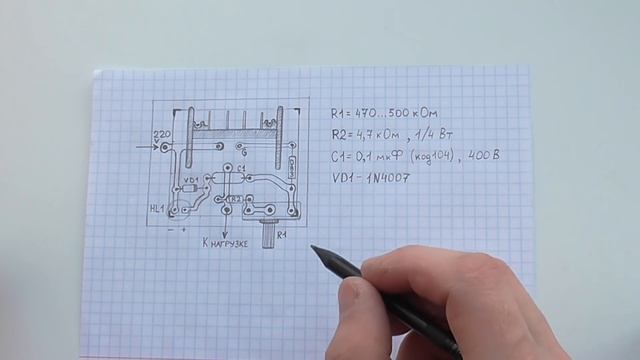 220
V
G
VD1
C1
R2
HL1
− +
К НАГРУЗКЕ
R1
R1 = 470...500 кОм
R2 = 4,7 кОм , 1/4 Вт
C1 = 0,1 мкФ (код 104) , 400 В
VD1 - 1N4007